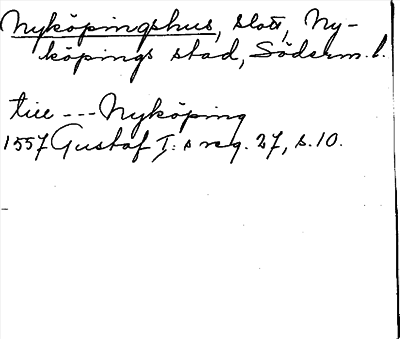 Nyköpingshus, slott, Ny-
köpings stad, Söderm. l.
till --- Nyköping
1557 Gustaf I:s reg. 27, s. 10.